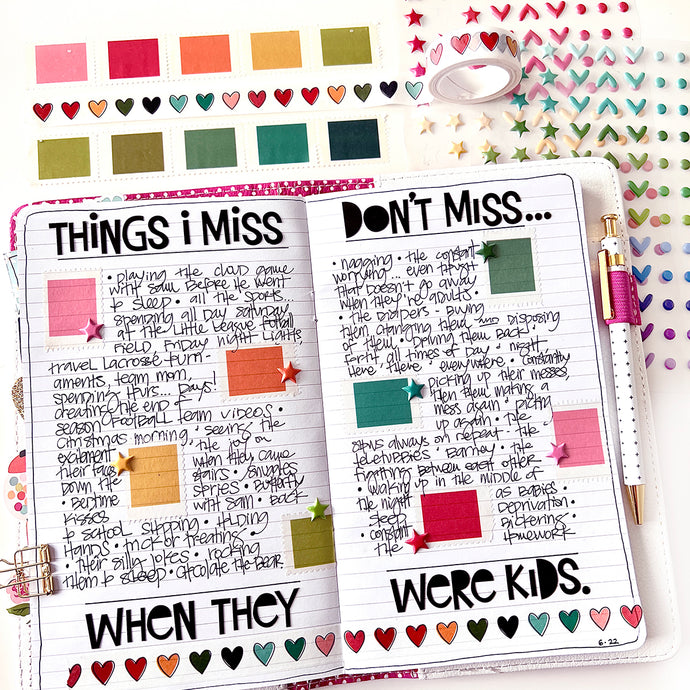 THINGS I MISS
• PLAYING THE CLOUD GAME
WITH SAM BEFORE HE WENT
TO SLEEP • ALL THE SPORTS...
SPENDING ALL DAY SATURDAY
AT THE LITTLE LEAGUE FOOTBALL
FIELD, FRIDAY NIGHT LIGHTS,
TRAVEL LACROSSE TOURN-
AMENTS, TEAM MOM,
SPENDING HOURS... DAYS!
CREATING THE END OF
SEASON FOOTBALL TEAM VIDEOS •
CHRISTMAS MORNING, SEEING THE
EXCITEMENT THE JOY ON
THEIR FACES WHEN THEY CAME
DOWN THE STAIRS • SNUGGLES
• BEDTIME STORIES • BUTTERFLY
KISSES WITH SAM • BACK
TO SCHOOL SHOPPING • HOLDING
HANDS • TRICK OR TREATING •
THEIR SILLY JOKES • ROCKING
THEM TO SLEEP • CHOCOLATE THE BEAR.
WHEN THEY
DON'T MISS...
• NAGGING • THE CONSTANT
WORRYING... EVEN THOUGH
THAT DOESN'T GO AWAY
WHEN THEY'RE ADULTS •
THE DIAPERS • BUYING
THEM, CHANGING THEM AND DISPOSING
OF THEM • DRIVING THEM BACK •
FORTH ALL TIMES OF DAY • NIGHT,
HERE • THERE • EVERYWHERE • CONSTANTLY
PICKING UP THEIR MESSES,
THEN THEM MAKING A
MESS AGAIN • PICKING
UP AGAIN • THE
SHOWS ALWAYS ON REPEAT • THE
TELETUBBIES • BARNEY • THE
FIGHTING BETWEEN EACH OTHER
• WAKING UP IN THE MIDDLE OF
THE NIGHT AS BABIES
SLEEP DEPRIVATION
• CONSTANT BICKERING •
THE HOMEWORK
WERE KIDS.
6•22